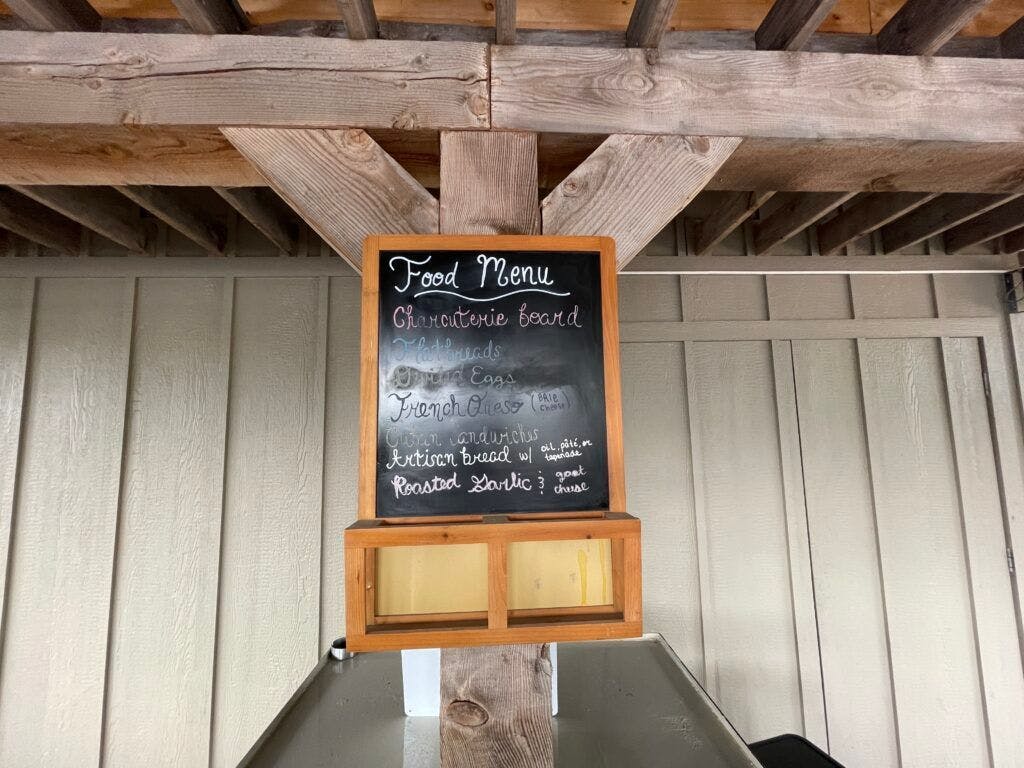 Food Menu
Charcuterie board
Flatbreads
Eggs
French Queso (BRIE cheese)
Cuban Sandwiches
Artisan bread w/ oil, pâté, or tapenade
Roasted Garlic & goat cheese